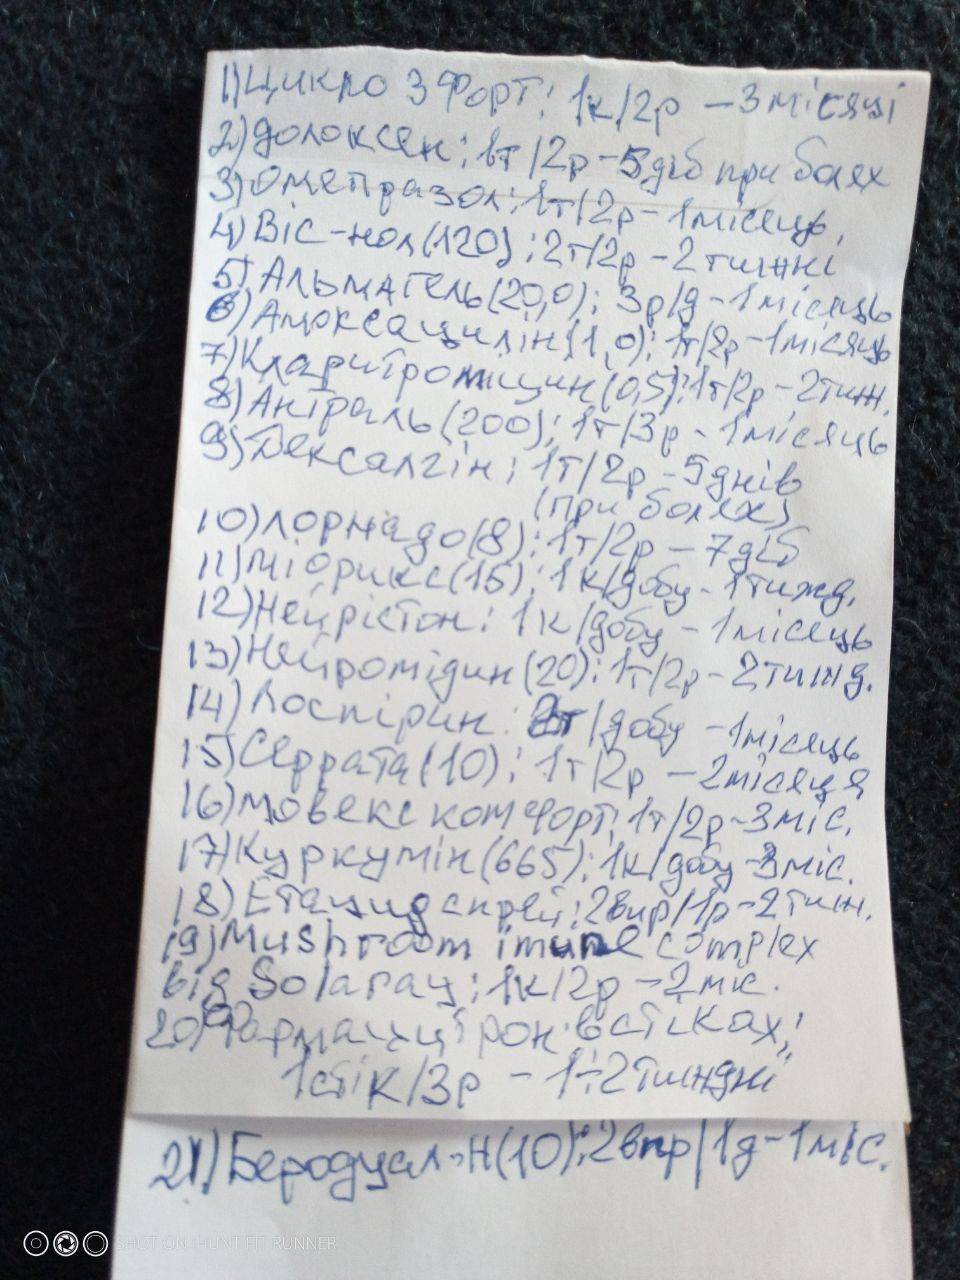 1) Цикло 3 Форт: 1к/2р – 3 місяці
2) Долоксен: 1т/2р – 5 діб при болях
3) Омепразол: 1т/2р – 1 місяць,
4) Віс-нол (120): 2т/2р – 2 тижні
5) Альмагель (20,0): 3р/д – 1 місяць
6) Амоксацилін (1,0): 1т/2р – 1 місяць
7) Кларитромицин (0,5): 1т/2р – 2 тиж.
8) Антраль (200): 1т/3р – 1 місяць
9) Дексалгін: 1т/2р – 5 днів
(при болях)
10) Лорнадо (8): 1т/2р – 7 діб
11) Міорикс (15): 1к/добу – 1 тижд.
12) Нейрістон: 1к/добу – 1 місяць
13) Нейромідин (20): 1т/2р – 2 тижд.
14) Лоспірин: 2т/добу – 1 місяць
15) Серрата (10): 1т/2р – 2 місяця
16) Мовекс комфорт: 1т/2р – 3 міс.
17) Куркумін (665): 1к/добу – 3 міс.
18) Етацид спрей: 2впр/1р – 2 тиж.
19) Mushroom imune complex
від Solaray: 1к/2р – 2 міс.
20) Фармацитрон в стіках:
1 стік/3р – 1÷2 тиждні
21) Беродуал-Н (10): 2впр/1д – 1 міс.
SHOT ON HUNT FIT RUNNER